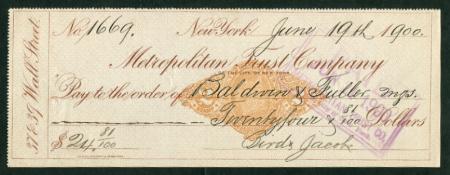 37 & 39 Wall Street.
No. 1669. New York June 19th 1900.
Metropolitan Trust Company
OF THE CITY OF NEW YORK
Pay to the order of Baldwin & Fuller
Twentyfour & 81/100 Dollars
$24 81/100
Jacob